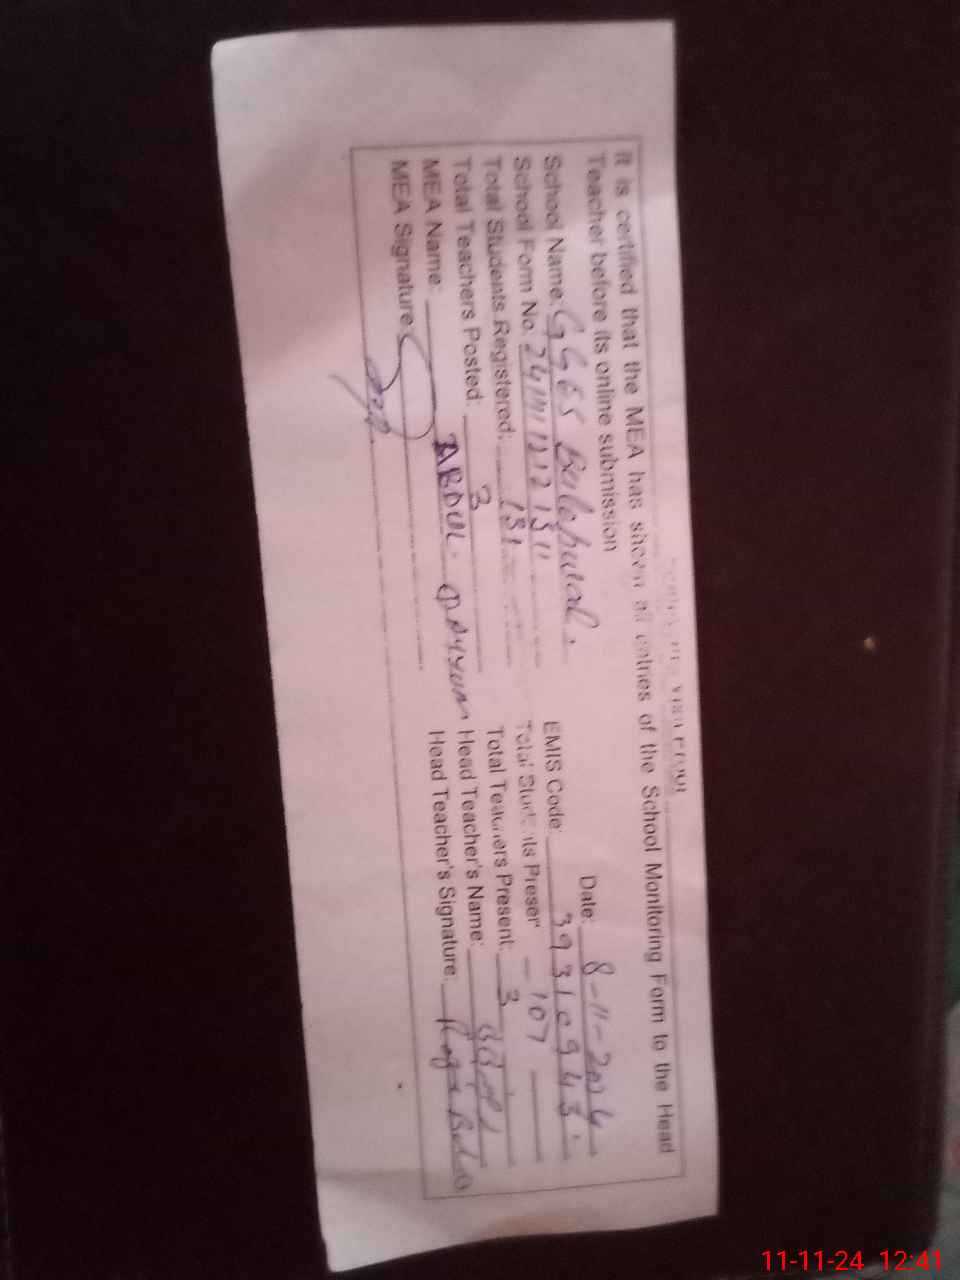 Visit Proof
It is certified that the MEA has sheen all entries of the School Monitoring Form to the Head
Teacher before its online submission
Date: 8-11-2024
School Name: GGES
EMIS Code: 39310943
School Form No.
Total Students Present 107
Total Students Registered: 131
Total Teachers Present: 3
Total Teachers Posted: 3
Head Teacher's Name:
MEA Name: ABDUL QAYYUM
Head Teacher's Signature:
MEA Signature:
11-11-24 12:41